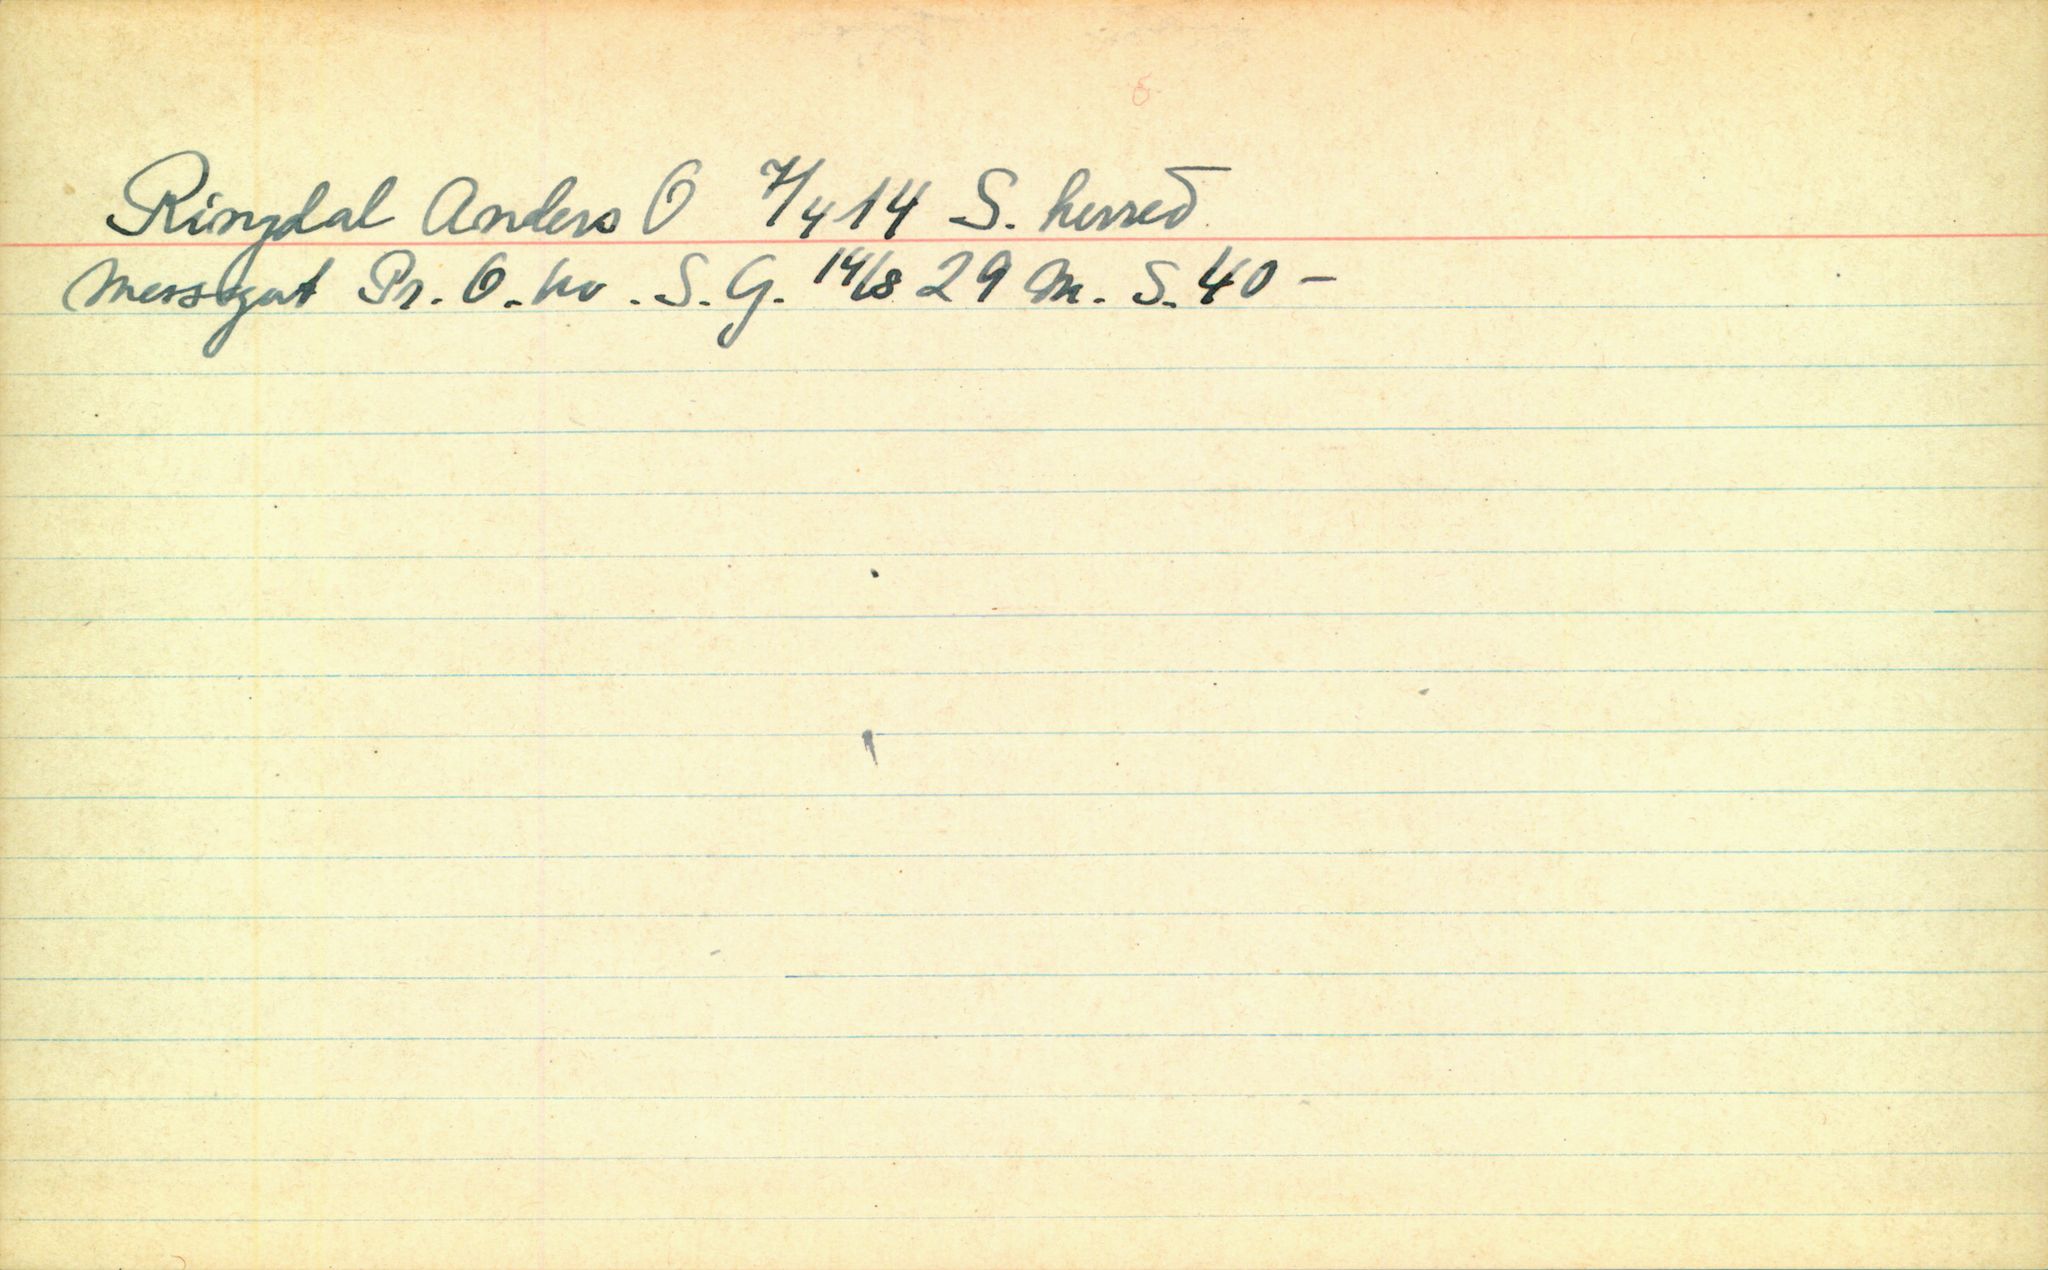 Ringdal Anders O 7/4 14 S. herred
Messegut Pr. O. hv. S. G. 14/8 29 M. S. 40 –